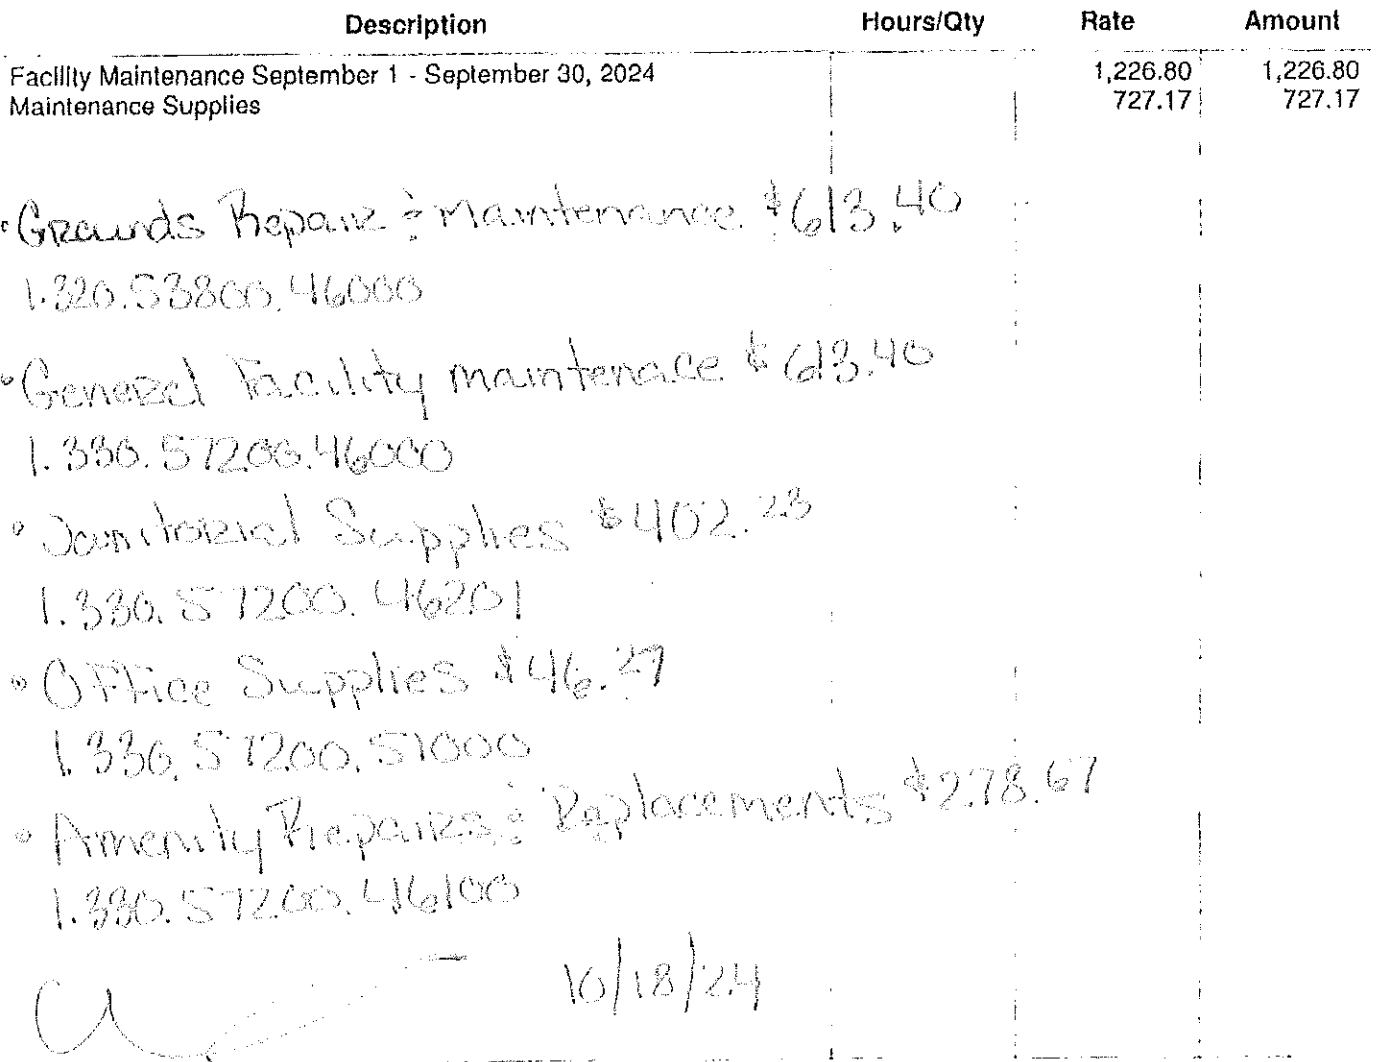 Description Hours/Qty Rate Amount
Facility Maintenance September 1 - September 30, 2024 1,226.80 1,226.80
Maintenance Supplies 727.17 727.17
• Grounds Repair & Maintenance $613.40
1.320.53800.46000
• General Facility maintenace $613.40
1.330.57200.46000
• Janitorial Supplies $402.23
1.330.57200.46201
• Office Supplies $46.27
1.330.57200.51000
• Amenity Repairs & Replacements $278.67
1.330.57200.46100
10/18/24